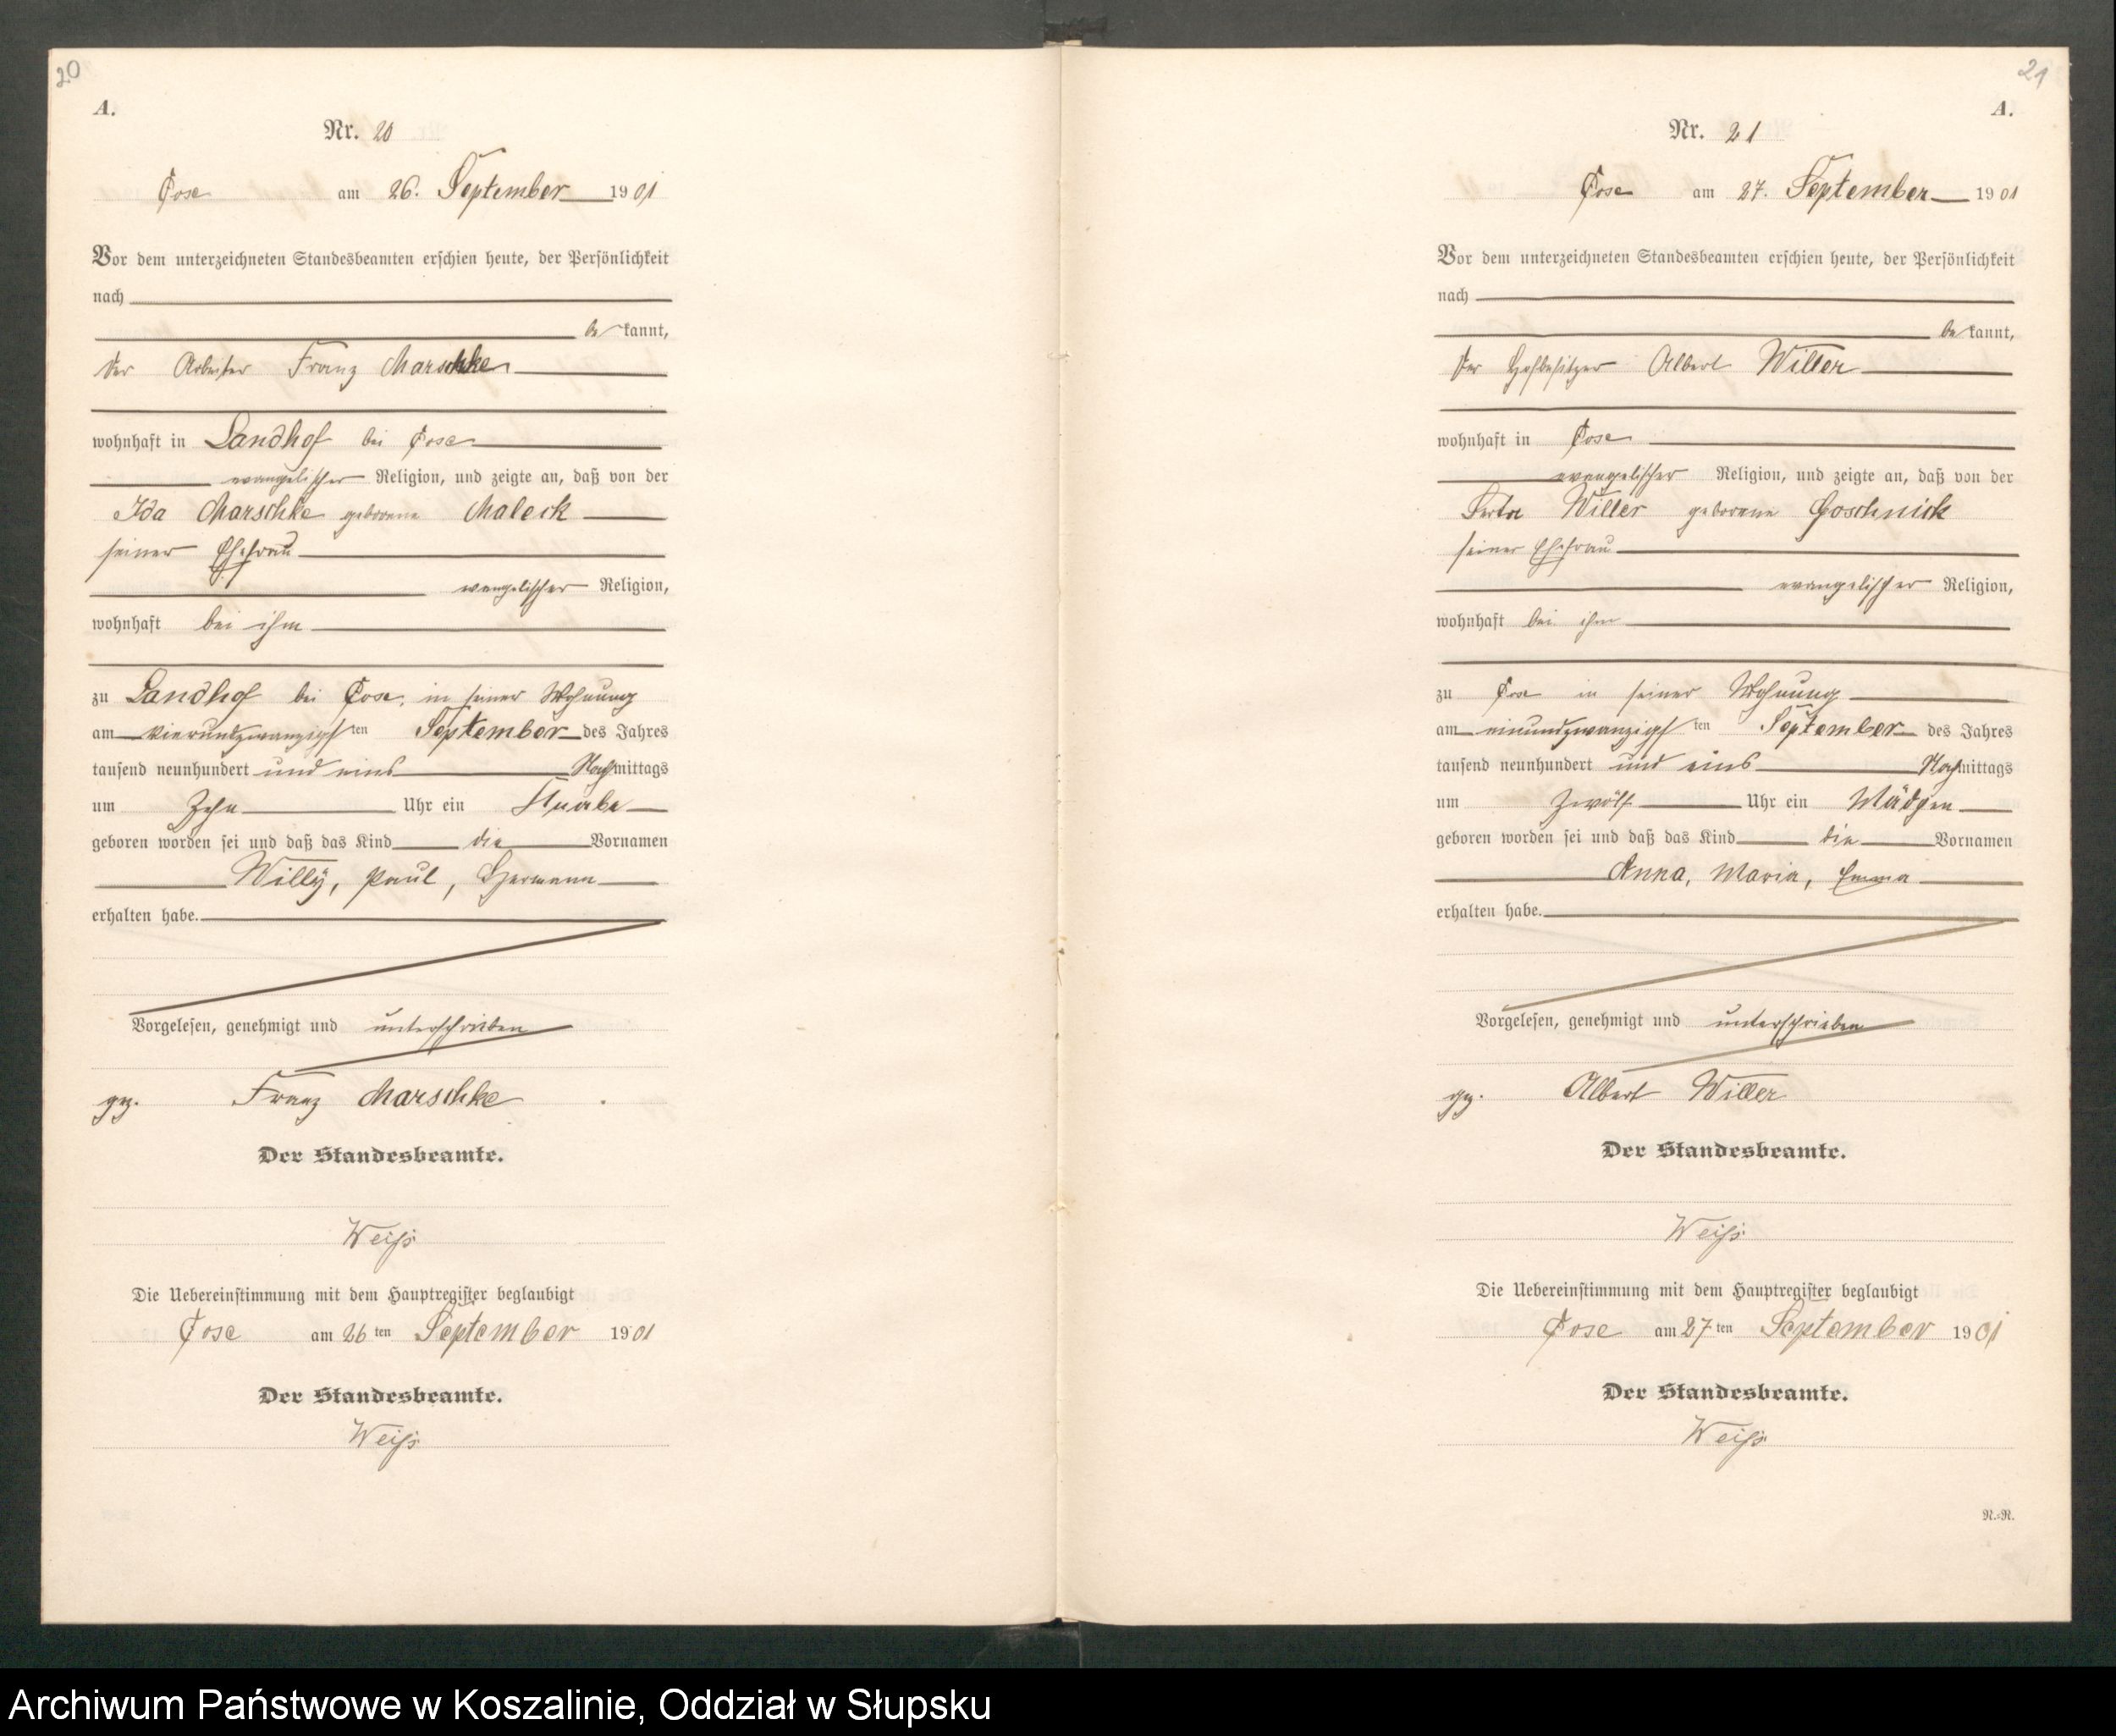 20
A.
Nr. 20
Cose am 26. September 1901
Vor dem unterzeichneten Standesbeamten erschien heute, der Persönlichkeit
nach
be kannt,
der Arbeiter Franz Marschke
wohnhaft in Landhof bei Cose
evangelischer Religion, und zeigte an, daß von der
Ida Marschke geborene Maleck
seiner Ehefrau
evangelischer Religion,
wohnhaft bei ihm
zu Landhof bei Cose, in seiner Wohnung
am vierundzwanzigsten September des Jahres
tausend neunhundert und eins Nachmittags
um Zehn Uhr ein Knabe
geboren worden sei und daß das Kind die Vornamen
Willy, Paul, Hermann
erhalten habe.
Vorgelesen, genehmigt und unterschrieben
gez. Franz Marschke
Der Standesbeamte.
Weiß
Die Uebereinstimmung mit dem Hauptregister beglaubigt
Cose am 26 ten September 1901
Der Standesbeamte.
Weiß
21
A.
Nr. 21
Cose am 27. September 1901
Vor dem unterzeichneten Standesbeamten erschien heute, der Persönlichkeit
nach
be kannt,
der Hofbesitzer Albert Willer
wohnhaft in Cose
evangelischer Religion, und zeigte an, daß von der
Willer geborene Goschnick
seiner Ehefrau
evangelischer Religion,
wohnhaft bei ihm
zu Cose in seiner Wohnung
am einundzwanzigsten September des Jahres
tausend neunhundert und eins Nachmittags
um Zwölf Uhr ein Mädchen
geboren worden sei und daß das Kind die Vornamen
Anna, Maria, Emma
erhalten habe.
Vorgelesen, genehmigt und unterschrieben
gez. Albert Willer
Der Standesbeamte.
Weiß
Die Uebereinstimmung mit dem Hauptregister beglaubigt
Cose am 27 ten September 1901
Der Standesbeamte.
Weiß
N.=R.
Archiwum Państwowe w Koszalinie, Oddział w Słupsku